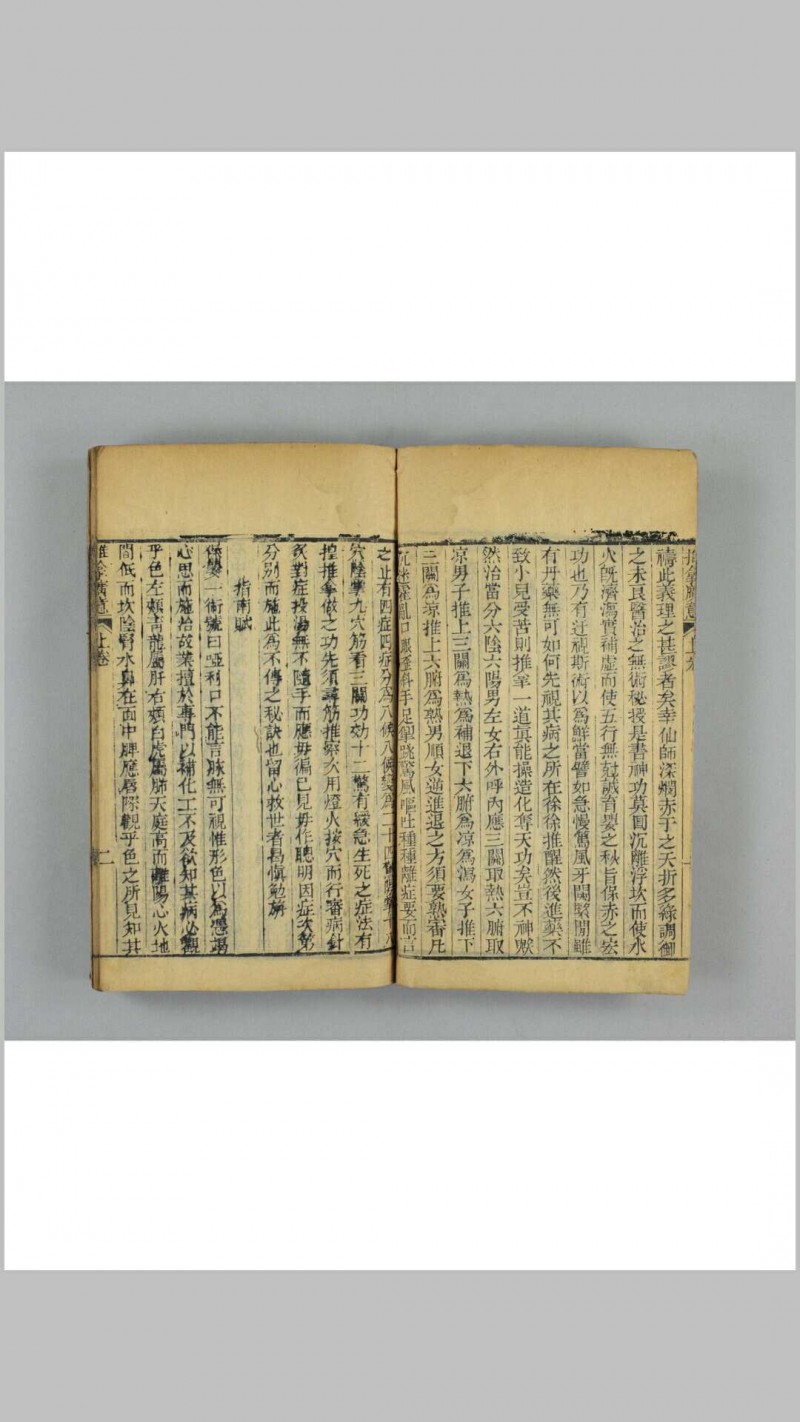 禱此義理之甚謬者矣幸仙師深憫赤子之夭折多緣調御
之未良醫治之無術秘授是書神功莫罔沉離浮坎而使水
火既濟瀉實補虛而使五行無愆誠育嬰之秘旨保赤之宏
功也乃有迂視斯術以為鮮當譬如急慢驚風牙關緊閉雖
有丹藥無可如何先視其病之所在徐徐推醒然後進藥不
致小兒受苦則推拿一道真能操造化奪天功矣豈不神歟
然治當分六陰六陽男左女右外呼內應三關取熱六腑取
凉男子推上三關為熱為補退下六腑為凉為瀉女子推下
三關為凉推上六腑為熟男順女逆進退之方須要熟審凡
口眼 手足 驚風嘔吐種種雜症要而言
之止有四症四症分為八候八候變為二十四驚
穴陰掌九穴筋看三關功効十二驚有緩急生死之症法有
掐推拿做之功先須尋筋推察次用燈火按穴而行審病針
灸對症投湯無不隨手而應毋偏己見毋作聰明因症次第
分別而施此為不傳之秘訣也留心救世者曷慎勉旃
指南賦
保嬰一術號曰啞科口不能言脉無可視惟形色以為憑竭
心思而施治故業擅於專門以補化工不及欲知其病必觀
乎色左頰青龍屬肝右頰白虎屬肺天庭高而離陽心火地
閣低而坎陰腎水鼻在面中脾應唇際觀乎色之所見知其
推拿廣意
上卷
二